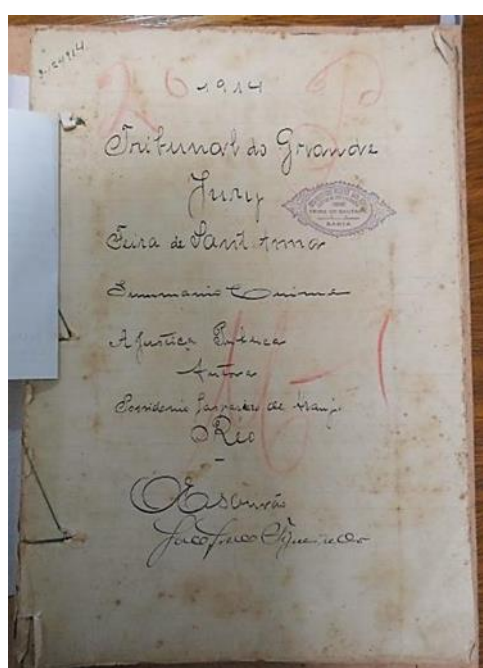 1914
Tribunal do Grande
Jury
Feira de Sant'Anna
Summario Crime
A Justiça Publica
Autora
de Araujo
O Réo
O Escrivão
Figueiredo